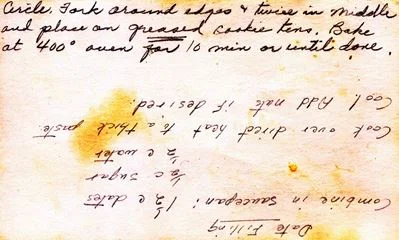 Circle. Fork around edges & twice in middle
and place on greased cookie tins. Bake
at 400° oven for 10 min or until done.
Date Filling
Combine in saucepan: 1 ½ c dates
½ c sugar
½ c water
Cook over direct heat to a thick paste.
Cool. Add nuts if desired.